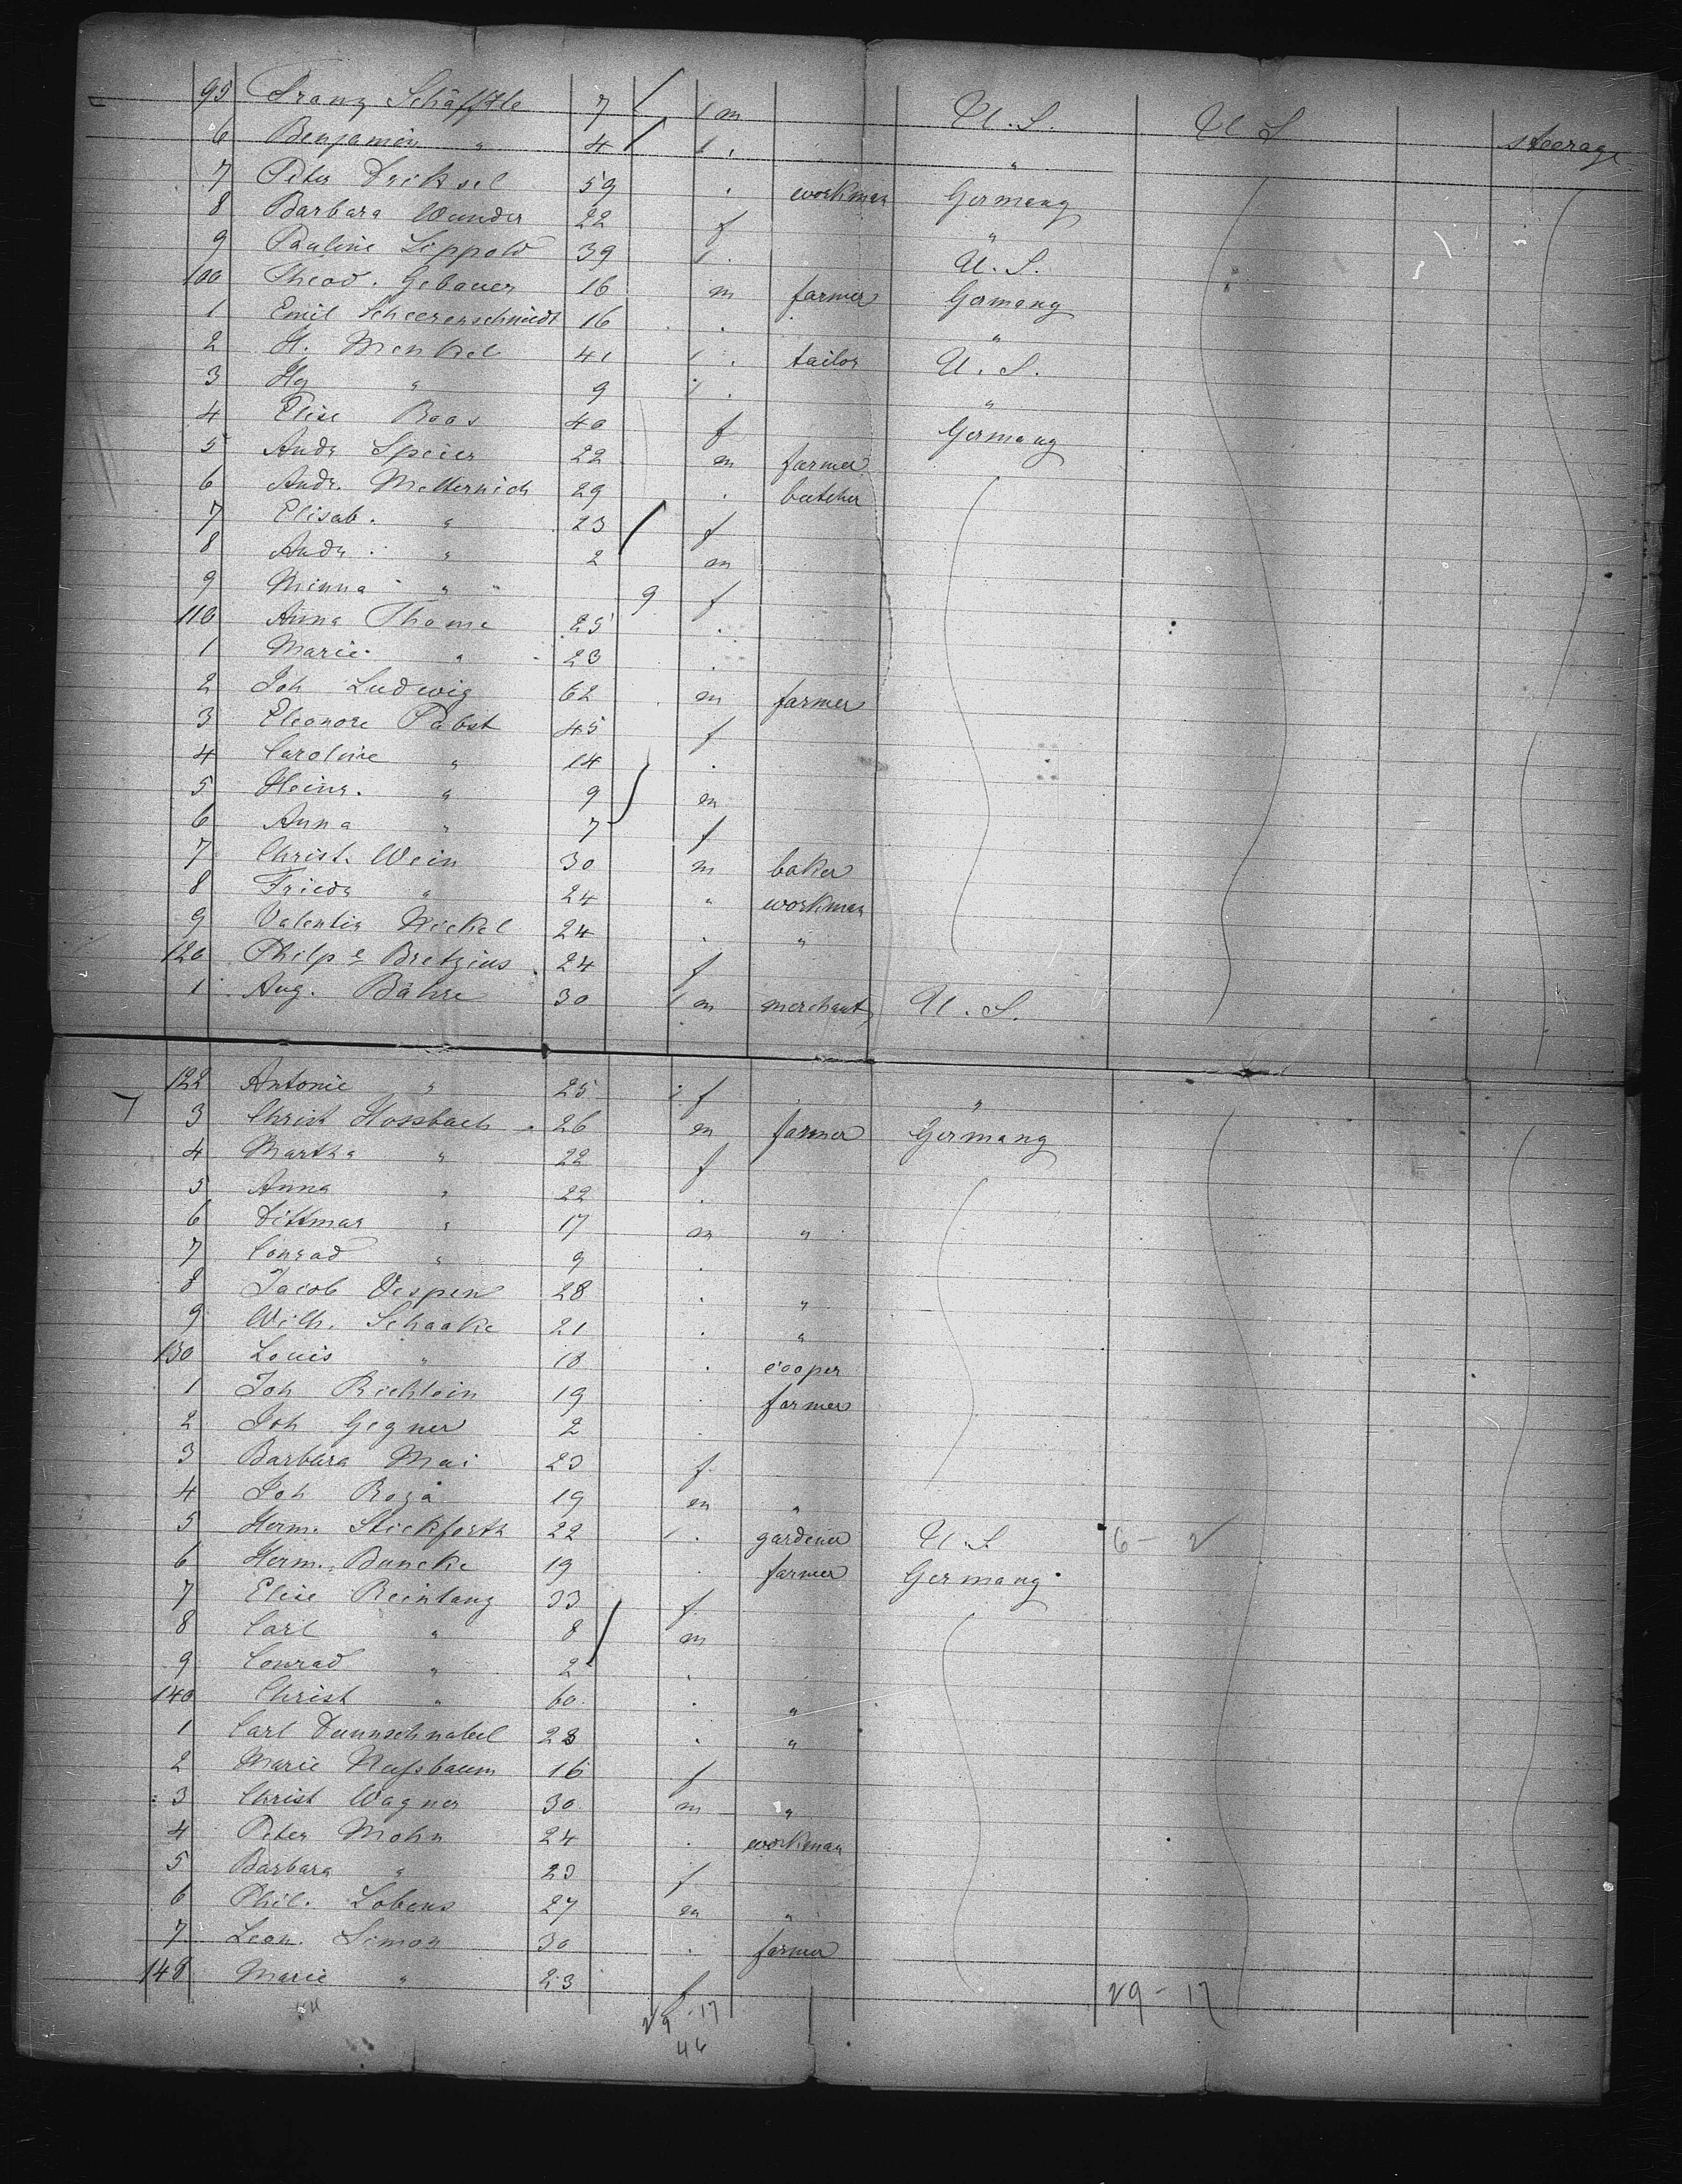 95 Franz Schäfftle 7 m U.S. U S steerage
6 Benjamin " 4 "
7 Peter Driksel 59 workman Germany
8 Barbara Wunder 22 f "
9 Pauline Lippold 39 U.S.
100 Theod. Gebauer 16 m farmer Germany
1 Emil Scheerenschmidt 16 "
2 H. Menkel 41 tailor U.S.
3 Hy " 9 "
4 Elise Boos 40 f Germany
5 Andr Speier 22 m farmer
6 Andr. Metternich 29 butcher
7 Elisab. " 23 f
8 Andr. " 2 m
9 Minna " 9 f
110 Anna Thome 25
1 Marie " 23
2 Joh Ludwig 62 m farmer
3 Eleonore Pabst 45 f
4 Caroline " 14
5 Heinr. " 9 m
6 Anna " 7 f
7 Christ. Wein 30 m baker
8 Friedr " 24 " workman
9 Valentin Nickel 24 "
120 Philp e Bretzius 24 f
1 Aug. Bähre 30 m merchant U.S.
122 Antonie " 25 f "
3 Christ Hossbach 26 m farmer Germany
4 Martha " 22 f
5 Anna " 22
6 Dittmar " 17 m "
7 Conrad " 9
8 Jacob Vespen 28 "
9 Wilh. Schaake 21 "
130 Louis " 18 cooper
1 Joh Richlein 19 farmer
2 Joh Gegner 2
3 Barbara Mai 23 f
4 Joh Roza 19 m "
5 Herm. Stickforth 22 gardener U.S 6 - 2
6 Herm. Buncke 19 farmer Germany
7 Elise Reintanz 33 f
8 Carl " 8 m
9 Conrad " 2
140 Christ " 60 "
1 Carl Dunnschnabel 23 "
2 Marie Nussbaum 16 f
3 Christ Wagner 30 m "
4 Peter Mohn 24 workman
5 Barbara " 23 f
6 Phil. Lobens 27 m "
7 Leon. Simon 30 farmer
148 Marie " 23 f
29 - 17 29 - 17
46